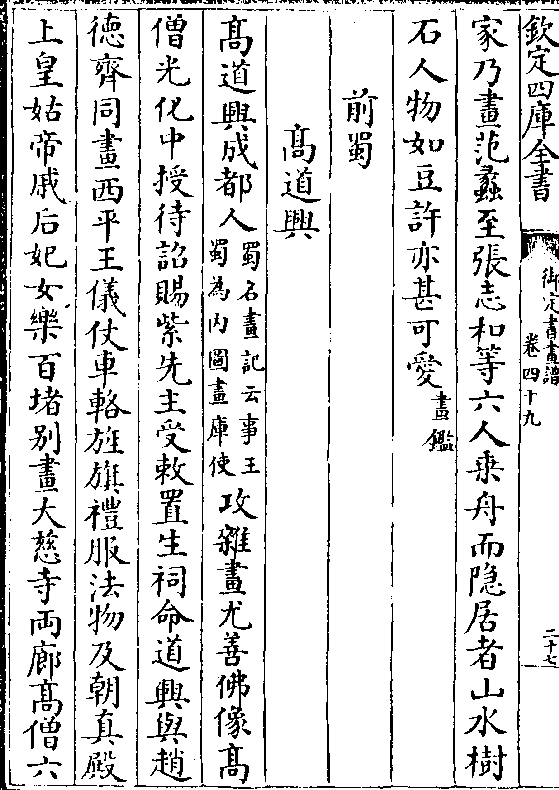 欽定四庫全書
御定書畫譜
卷四十九
二十七
家乃畫范蠡至張志和等六人乗舟而隐居者山水樹
石人物如豆許亦甚可愛畫鑑
前蜀
髙道興
髙道興成都人蜀名畫記云事王蜀為内圖畫庫使攻雜畫尤善佛像髙
僧光化中授待詔賜紫先主受敕置生祠命道興與趙
徳齊同畫西平王儀仗車輅旌旗禮服法物及朝真殿
上皇姑帝戚后妃女樂百堵别畫大慈寺両廊髙僧六